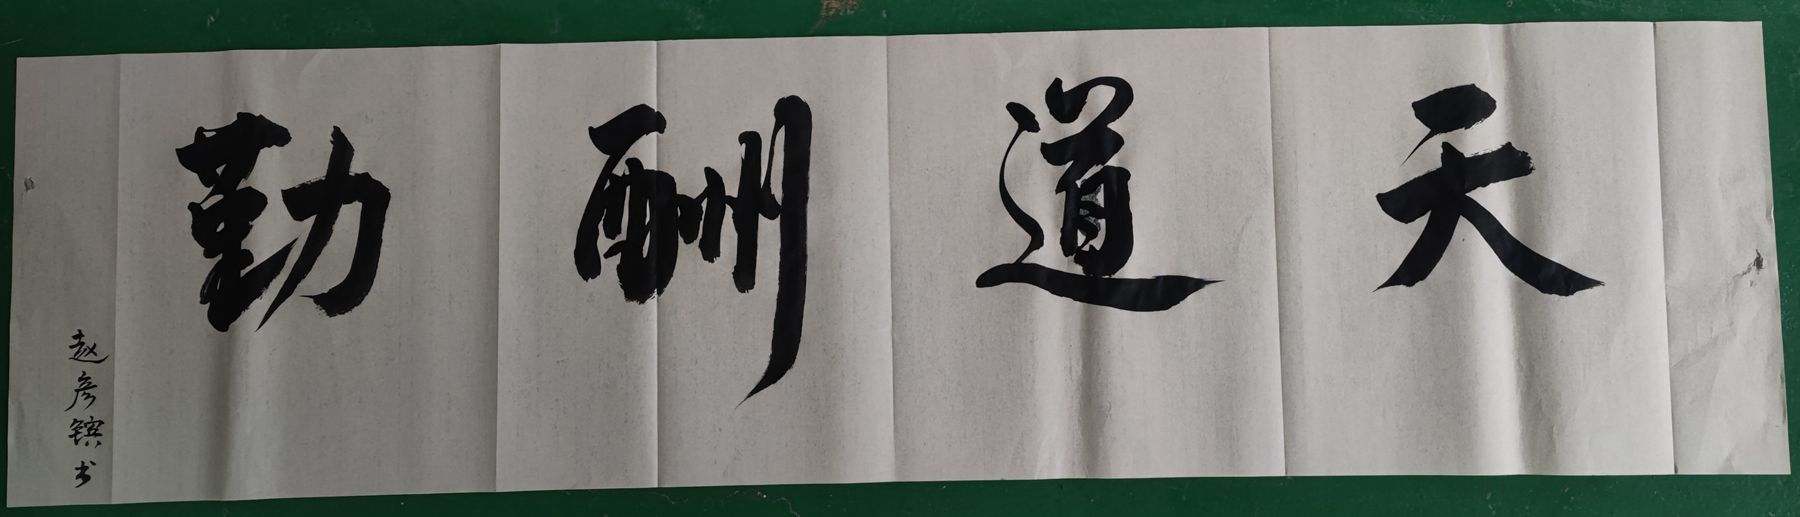 天道酬勤
赵彦镔书